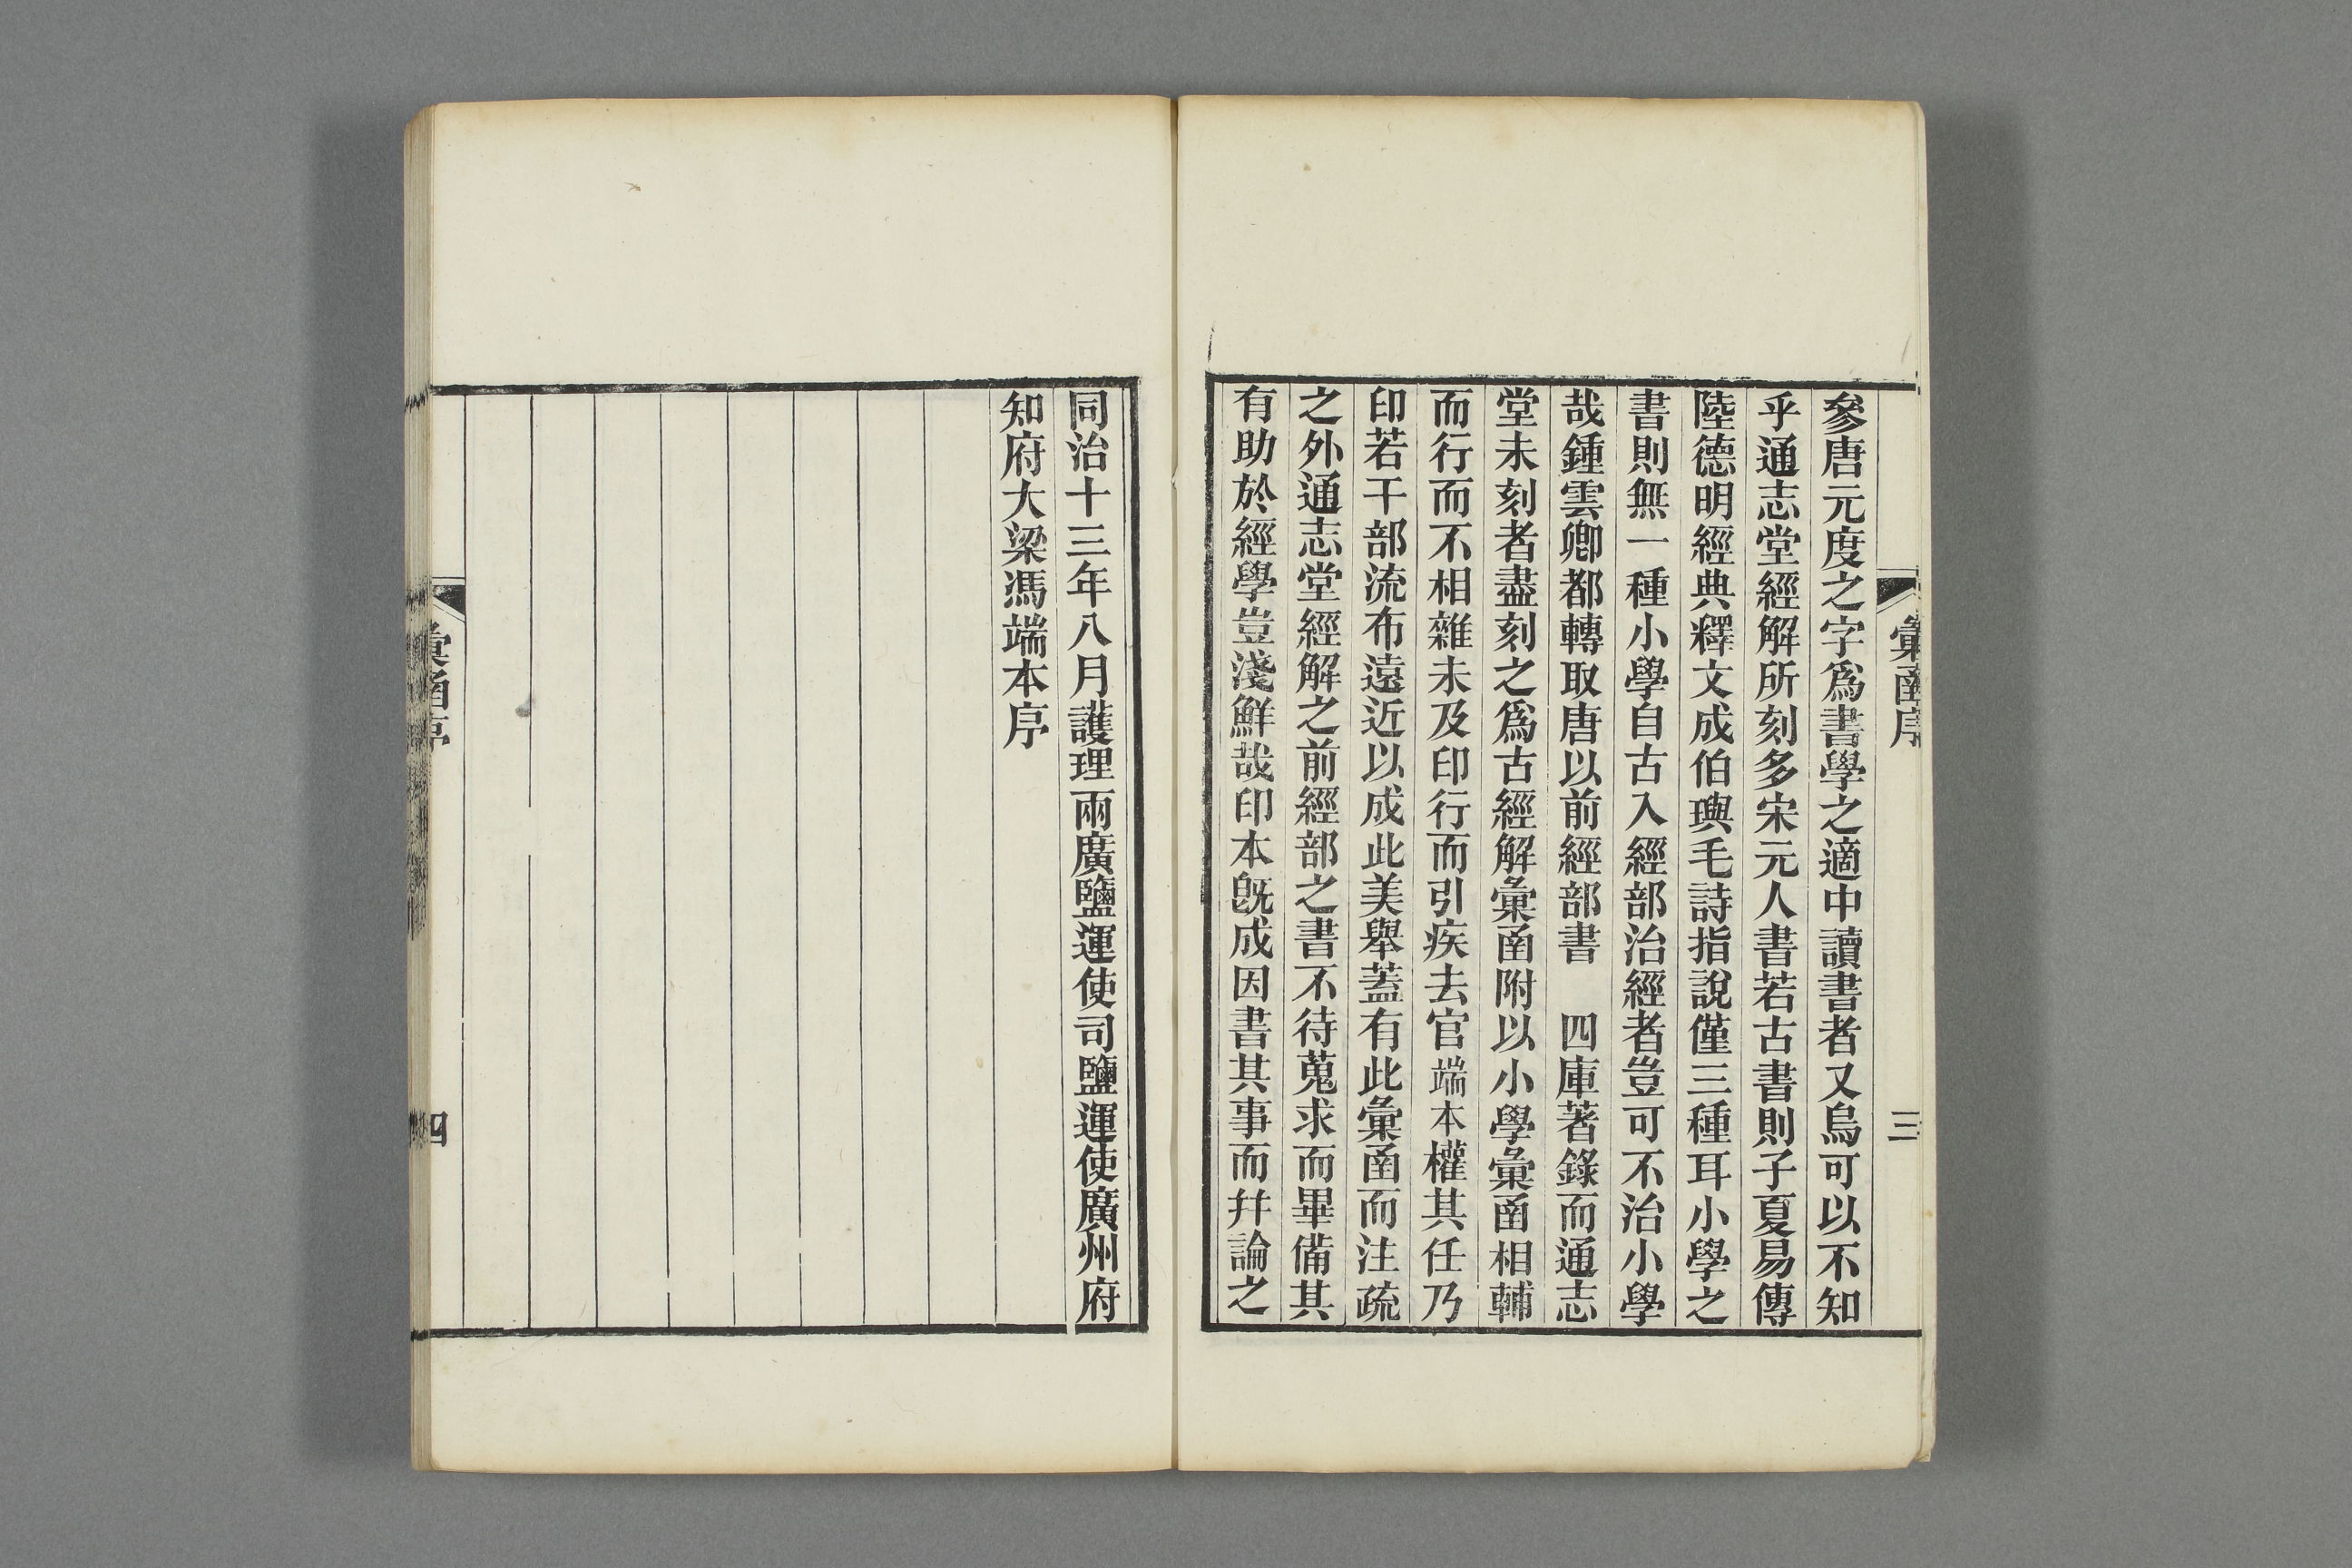 彙函序
三
參唐元度之字爲書學之適中讀書者又烏可以不知
乎通志堂經解所刻多宋元人書若古書則子夏易傳
陸德明經典釋文成伯璵毛詩指說僅三種耳小學之
書則無一種小學自古入經部治經者豈可不治小學
哉鍾雲卿都轉取唐以前經部書　四庫著錄而通志
堂未刻者盡刻之爲古經解彙函附以小學彙函相輔
而行而不相雜未及印行而引疾去官端本權其任乃
印若干部流布遠近以成此美舉蓋有此彙函而注疏
之外通志堂經解之前經部之書不待蒐求而畢備其
有助於經學豈淺鮮哉印本旣成因書其事而幷論之
同治十三年八月護理兩廣鹽運使司鹽運使廣州府
知府大梁馮端本序
彙函序
四